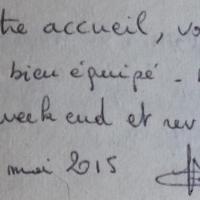 tre accueil, vo
bien équipé -
week end et rev
mai 2015